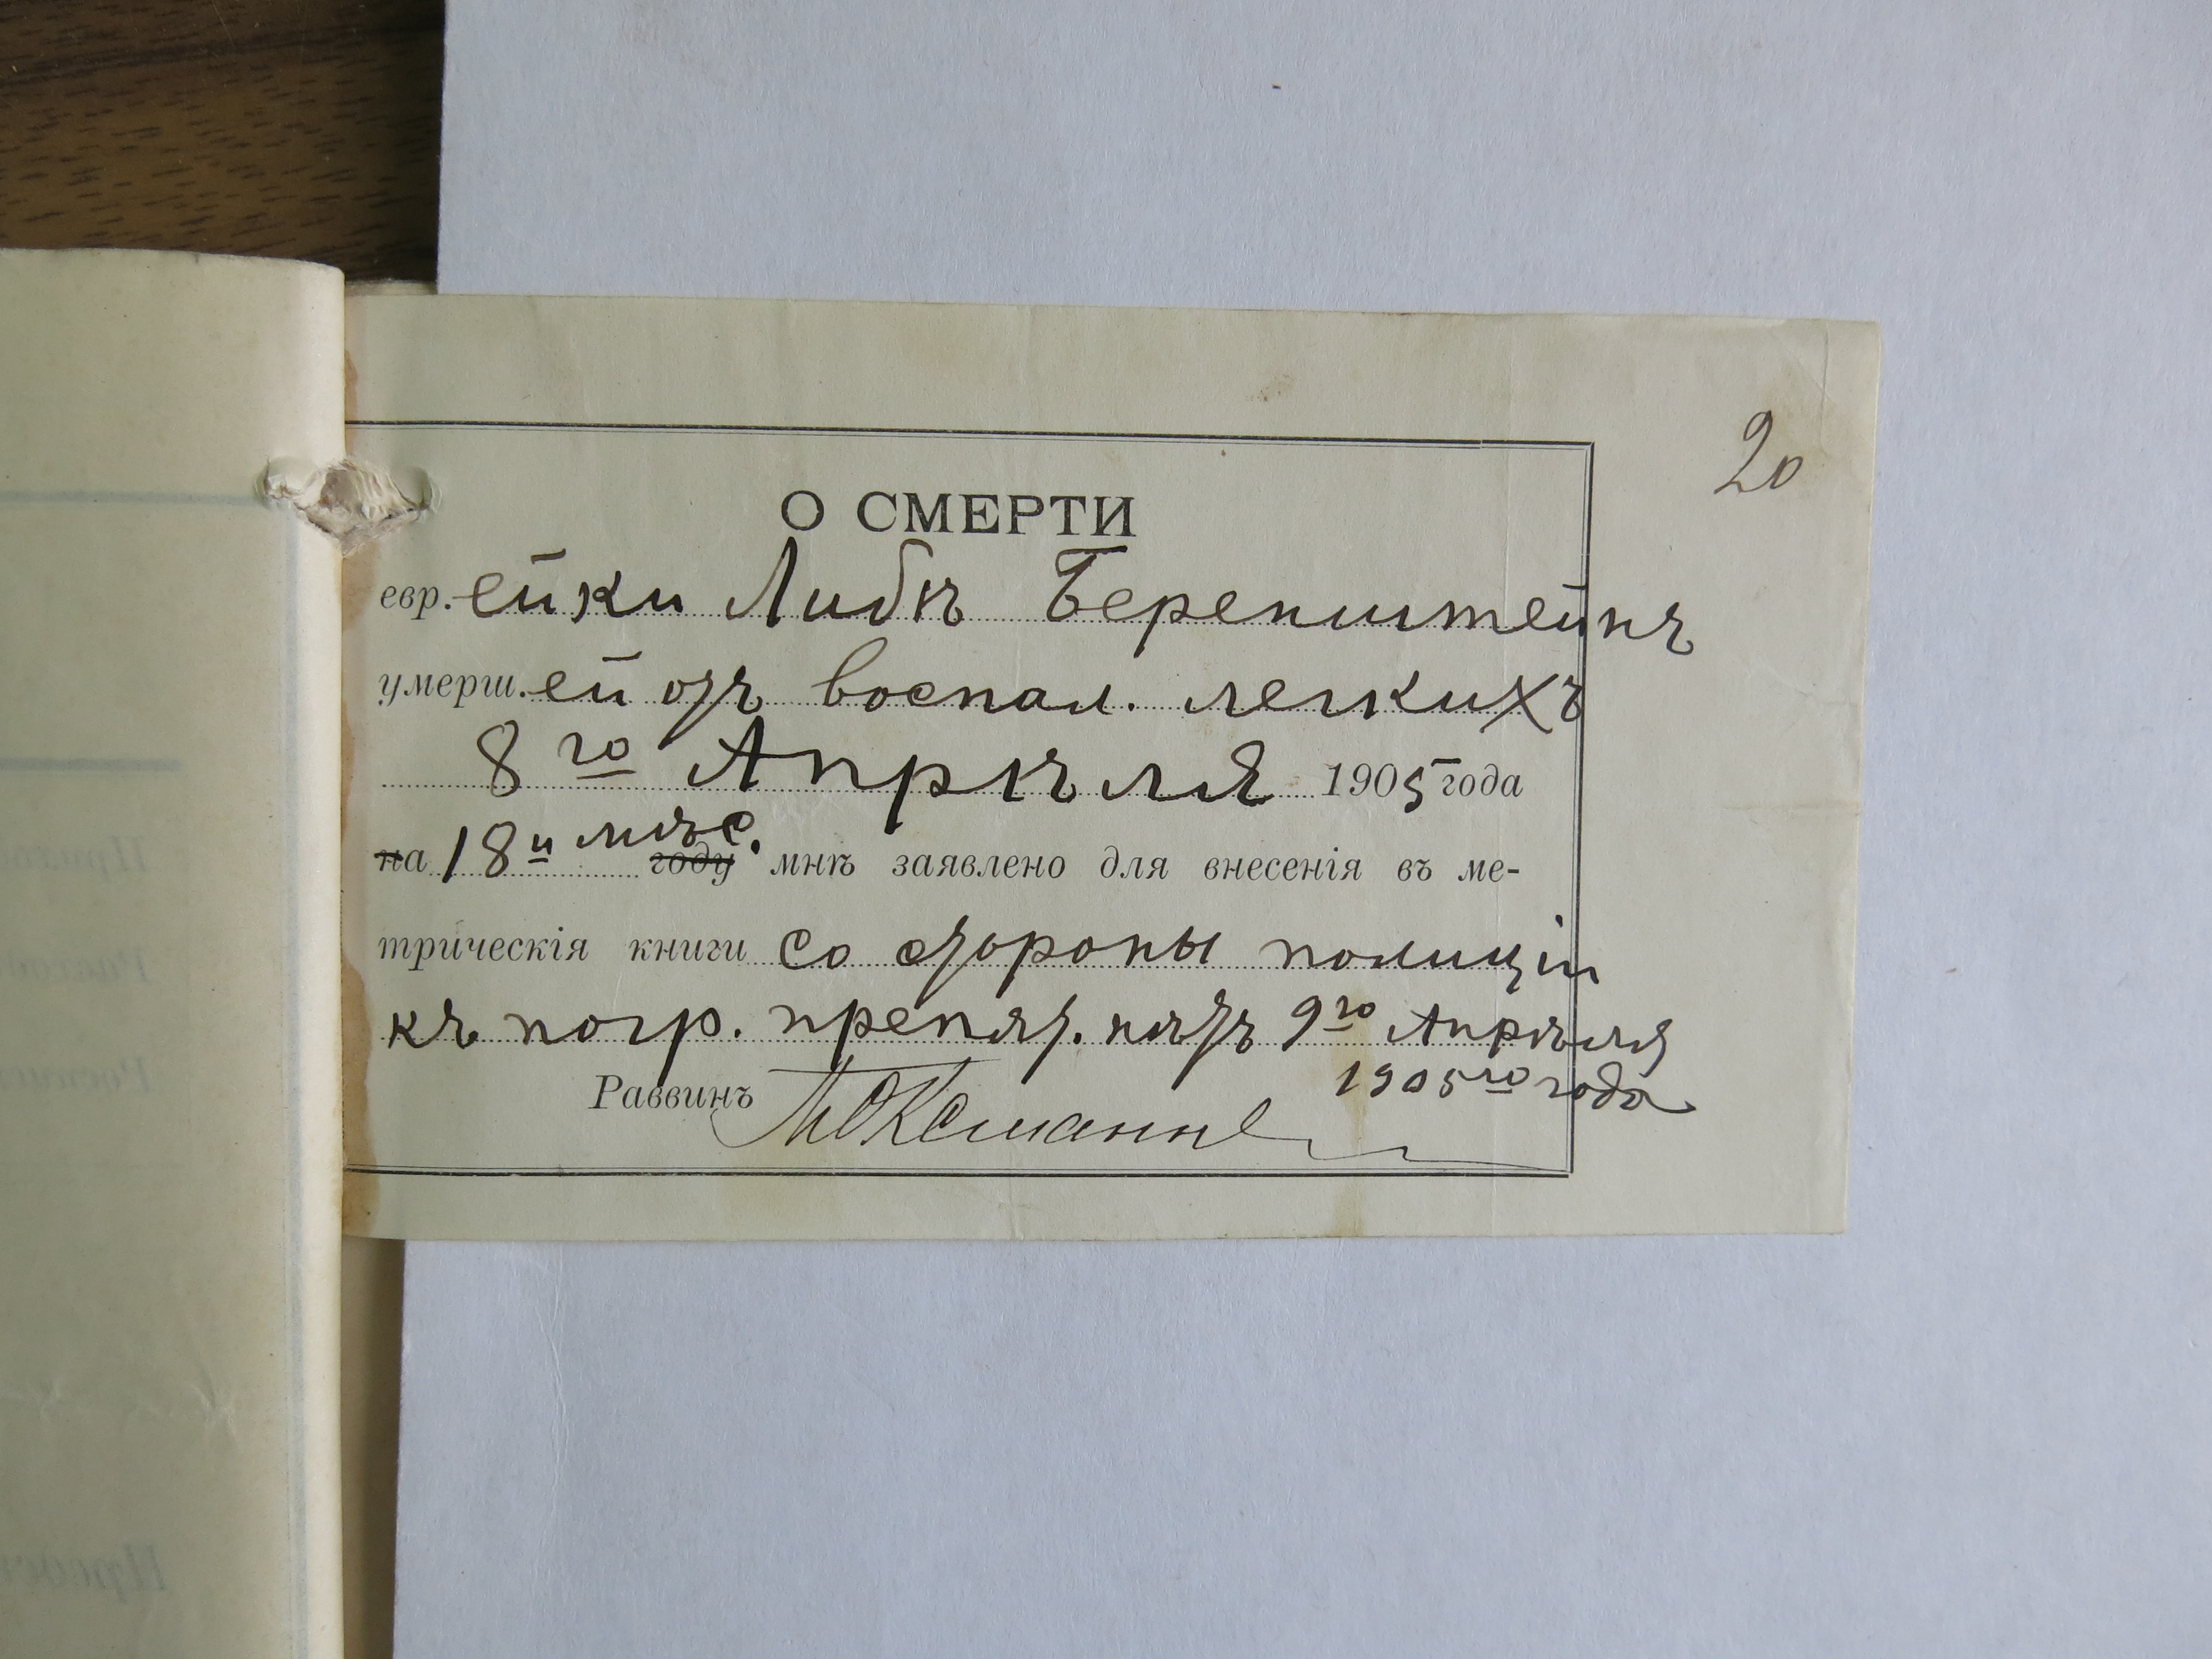 20
О СМЕРТИ
евр. ейки Либѣ Беренштейнъ
умерш. ей отъ воспал. легкихъ
8го Апрѣля 1905 года
на 18и мѣс. году мнѣ заявлено для внесенія въ ме-
трическія книги со стороны полиціи
къ погр. препят. нѣтъ 9го Апрѣля
1905го года
Раввинъ